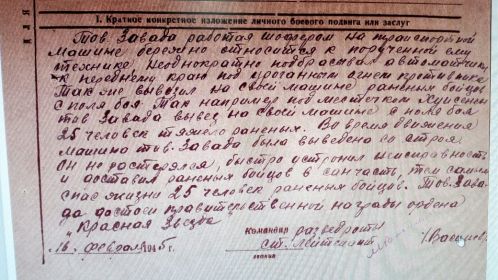 I. Краткое конкретное изложение личного боевого подвига или заслуг
Тов. Завада работая шофером на транспортной
машине бережно относится к порученной ему
технике. Неоднократно подбрасывал автоматчиков
к переднему краю под ураганным огнем противника
Так же вывозил на своей машине раненых бойцов
с поля боя. Так например под местечком
тов Завада вывез на своей машине с поля боя
25 человек тяжело раненых. Во время движения
машина тов. Завада была выведена со строя
Он не растерялся, быстро устронил неисправность
и доставил раненых бойцов в санчасть, тем самым
спас жизни 25 человек раненых бойцов. Тов. Зава-
да достоин правительственной награды ордена
"Красная Звезда"
Командир разведроты
16 февраля 1945 г. ст. лейтенант
звание